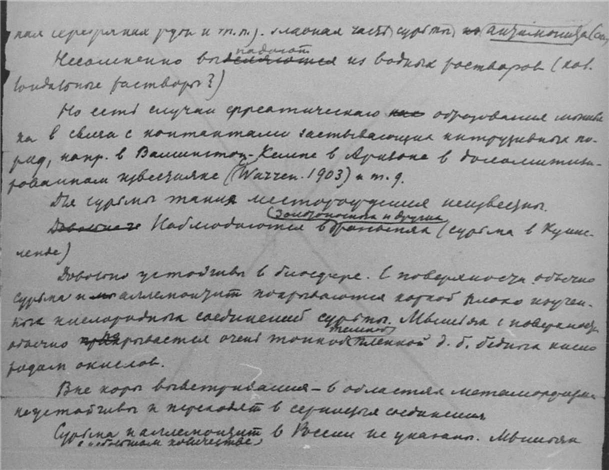 ная серебряная руда и т.п.). главная часть сурьмы из аллемонтита
Несомненно выпадают из водных растворов (кол
лоидальные растворы?)
Но есть случаи образования мышья
ка в связи с контактами застывающих интрузивных по
род, напр. в Вашингтон-Кемпе в Аризоне в доломитизи
рованном известняке (1903) и т.д.
Для сурьмы такия месторождения неизвестны.
Наблюдаются в (сурьма в
ленде)
Довольно устойчивы в биосфере. С поверхности обычно
сурьма и аллемонтит покрываются коркой плохо изучен
ных кислородных соединений сурьмы. Мышьяк с поверхности
обычно покрывается очень тонкой темной пленкой д.б. бедных кисло
родом окислов.
Вне коры выветривания – в областях метаморфизма
неустойчивы и переходят в сернистые соединения
Сурьма и аллемонтит в России не указаны. Мышьяк
в небольшом количестве